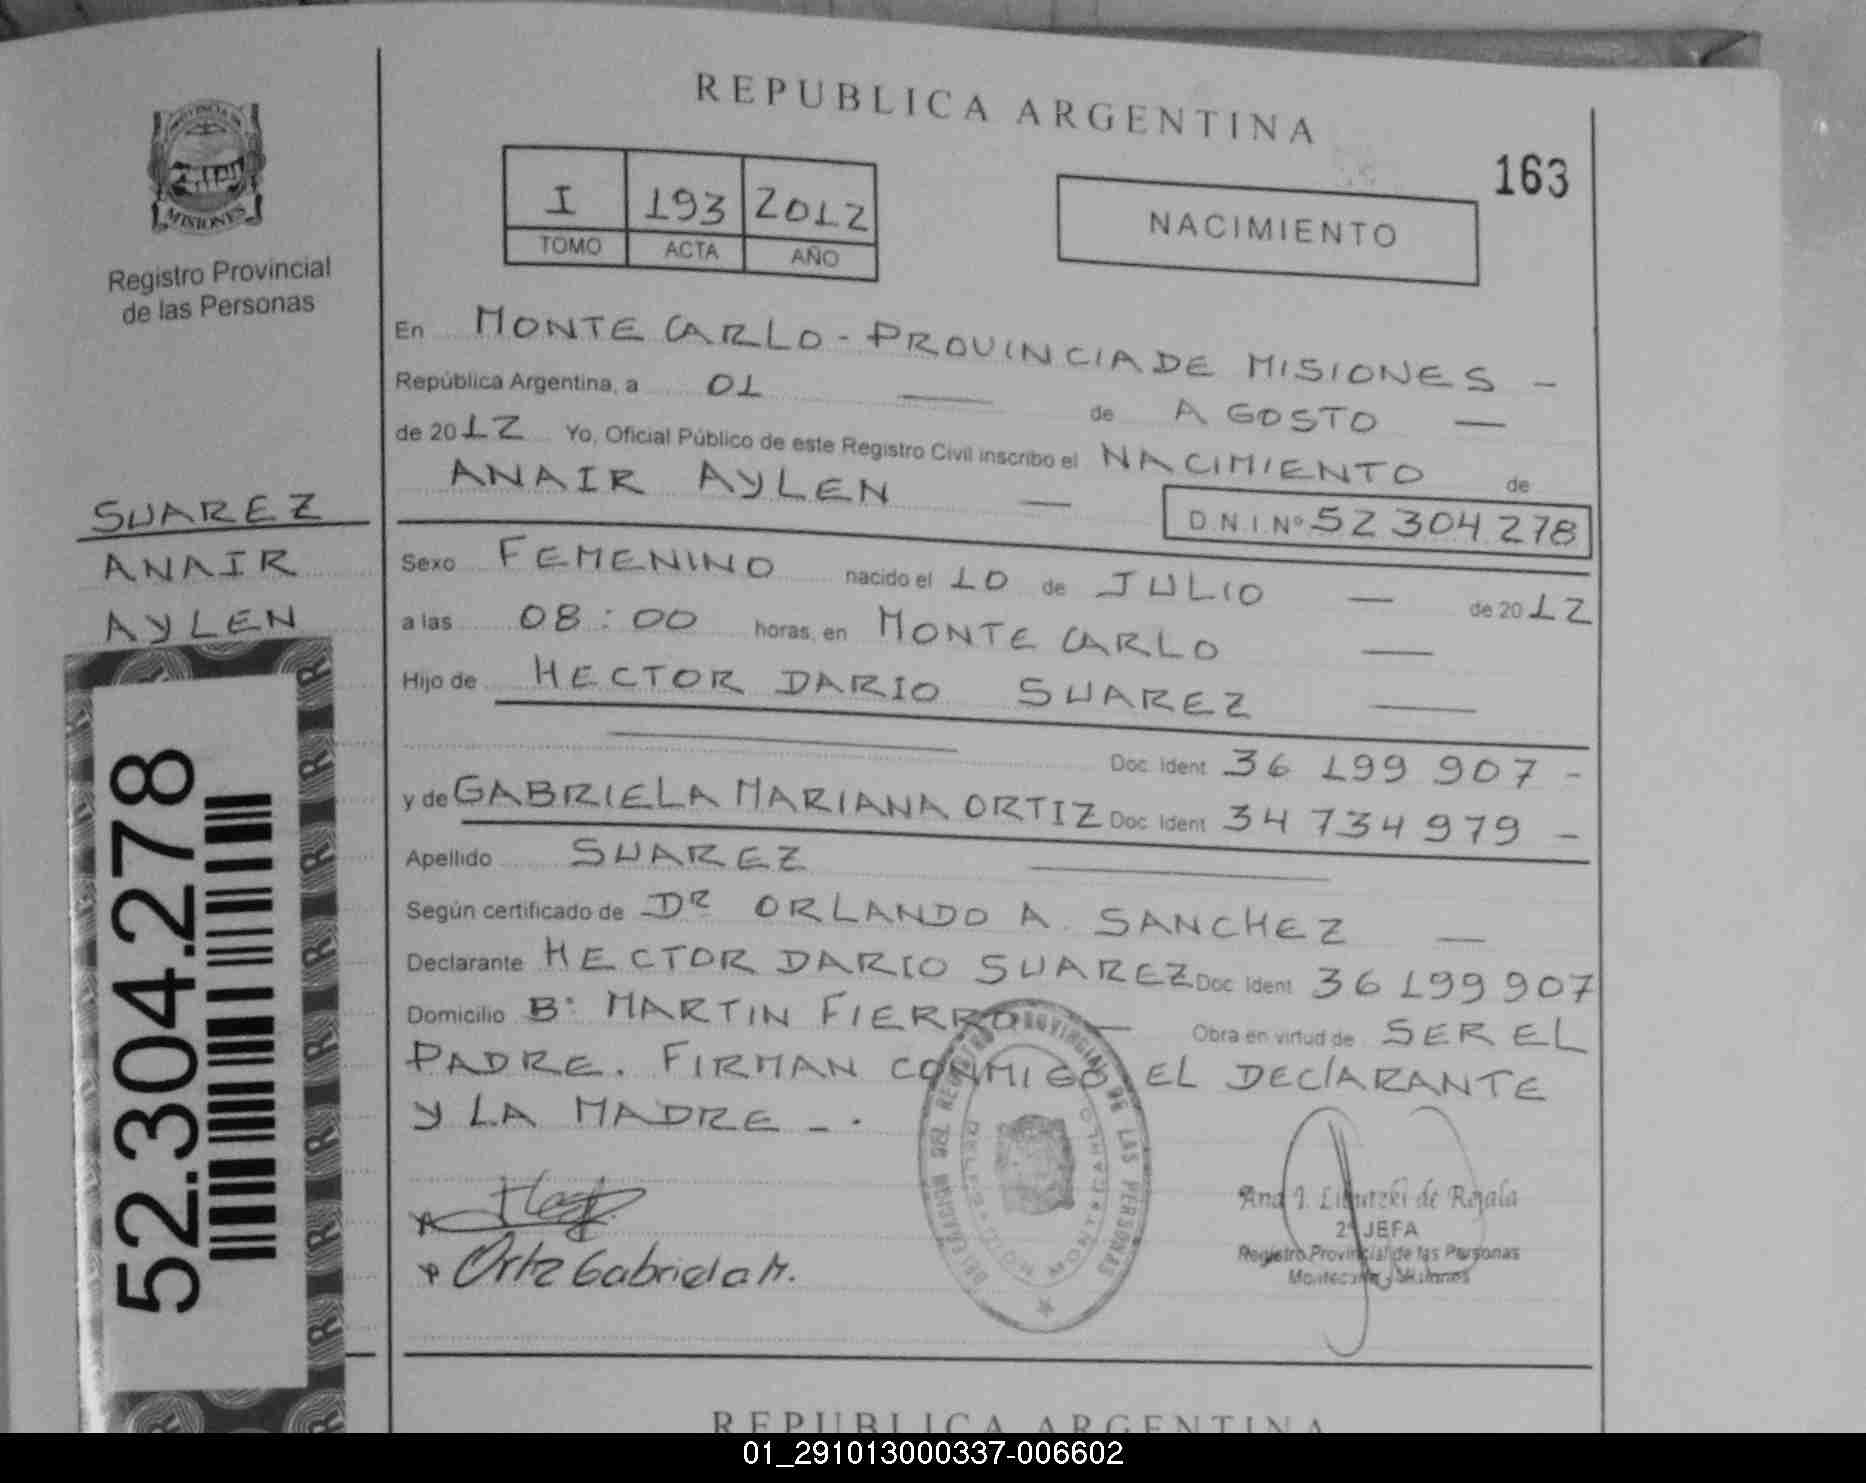 REPUBLICA ARGENTINA
163
PROVINCIA DE
MISIONES
Registro Provincial
de las Personas
I 193 2012
TOMO ACTA AÑO
NACIMIENTO
En MONTE CARLO - PROVINCIA DE MISIONES -
República Argentina, a 01 — de AGOSTO —
de 2012 Yo, Oficial Público de este Registro Civil inscribo el NACIMIENTO de
ANAIR AYLEN — D.N.I. Nº 52 304 278
SUAREZ
ANAIR
AYLEN
Sexo FEMENINO nacido el 10 de JULIO — de 2012
a las 08:00 horas, en MONTE CARLO —
Hijo de HECTOR DARIO SUAREZ —
Doc. Ident 36 199 907 -
y de GABRIELA MARIANA ORTIZ Doc. Ident 34 734 979 -
Apellido SUAREZ —
Según certificado de Dr ORLANDO A. SANCHEZ —
Declarante HECTOR DARIO SUAREZ Doc. Ident 36 199 907
Domicilio Bº MARTIN FIERRO — Obra en virtud de SER EL
PADRE. FIRMAN CONMIGO EL DECLARANTE
Y LA MADRE - .
52.304.278
DELEGACION DEL REGISTRO PROVINCIAL DE LAS PERSONAS
MONTECARLO
MISIONES
Ortiz Gabriela M.
Ana I. de Rojala
2º JEFA
Registro Provincial de las Personas
Montecarlo - Misiones
REPUBLICA ARGENTINA
01_291013000337-006602